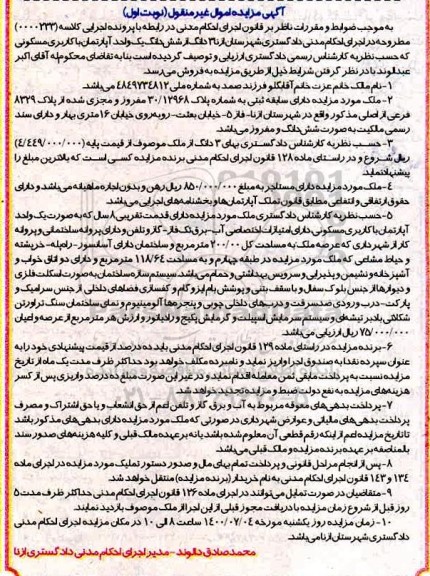 آگهی مزایده اموال غیر منقول (نوبت اول)
به موجب ضوابط و مقررات ناظر بر قانون اجرای احکام مدنی در رابطه با پرونده اجرایی کلاسه (۰۰۰۰۲۳۳)
مطروحه در اجرای احکام مدنی دادگستری شهرستان ازنا ۳ دانگ از شش دانگ یک واحد آپارتمان با کاربری مسکونی
که حسب نظریه کارشناس رسمی دادگستری ارزیابی و توصیف گردیده است بنا به تقاضای محکوم‌له آقای اکبر
عبدالوند با در نظر گرفتن شرایط ذیل از طریق مزایده به فروش می‌رسد.
۱- نام مالک خانم عزت خانم آقابگلو فرزند صمد به شماره ملی ۴۸۴۹۷۳۴۸۱۲ می‌باشد.
۲- ملک مورد مزایده دارای سابقه ثبتی به شماره پلاک ۳۰/۱۲۹۶۸ مفروز و مجزی شده از پلاک ۸۳۲۹
فرعی از اصلی مذکور واقع در شهرستان ازنا- فاز ۵- خیابان بعثت- روبه‌روی خیابان ۱۶ متری بهار و دارای سند
رسمی مالکیت به صورت شش دانگ و مفروز می‌باشد.
۳- حسب نظریه کارشناس دادگستری بهای ۳ دانگ از ملک موصوف از قیمت پایه (۴/۴۴۹/۰۰۰/۰۰۰)
ریال شروع و در راستای ماده ۱۲۸ قانون اجرای احکام مدنی برنده مزایده کسی است که بالاترین مبلغ را
پیشنهاد نماید.
۴- ملک مورد مزایده دارای مستاجر به مبلغ ۸۵۰/۰۰۰/۰۰۰ ریال رهن و بدون اجاره ماهیانه می‌باشد و دارای
حقوق ارتفاقی و انتفاعی مطابق قانون تملک آپارتمان‌ها و بخشنامه‌های اجرایی می‌باشد.
۵- حسب نظریه کارشناس دادگستری ملک مورد مزایده دارای قدمت تقریبی ۸ سال که به صورت یک واحد
آپارتمان با کاربری مسکونی دارای امتیازات اختصاصی آب- برق تک فاز- گاز و تلفن و دارای پروانه ساختمانی و پروانه
کار از شهرداری که عرصه ملک به مساحت کل ۲۰۰/۰۰ مترمربع و ساختمان دارای آسانسور- راه‌پله- خرپشته
و حیاط مشاعی که ملک مورد مزایده در طبقه چهارم و به مساحت ۱۱۸/۶۴ مترمربع و دارای دو اتاق خواب و
آشپزخانه و نشیمن و پذیرایی و سرویس بهداشتی و حمام می‌باشد. سیستم سازه ساختمان به صورت اسکلت فلزی
و دیوارها از جنس بلوک سفال و با سقف بتنی و پوشش بام ایزوگام و کفسازی فضاهای داخلی از جنس سرامیک و
پارکت- درب ورودی ضدسرقت و درب‌های داخلی چوبی و پنجره‌ها آلومینیوم و نمای ساختمان سنگ تراورتن
شکلاتی با آجر تیشه‌ای و سیستم سرمایش اسپیلت و گرمایش پکیج و رادیاتور و ارزش هر مترمربع از عرصه و اعیان
۷۵/۰۰۰/۰۰۰ ریال ارزیابی می‌باشد.
۶- برنده مزایده در راستای ماده ۱۲۹ قانون اجرای احکام مدنی باید ده درصد از قیمت پیشنهادی خود را به
عنوان سپرده نقداً به صندوق اجرا واریز نماید و نامبرده مکلف خواهد بود حداکثر ظرف مدت یک ماه از تاریخ
مزایده نسبت به پرداخت مابقی ثمن معامله اقدام نماید و در غیر این صورت مبلغ ده درصد واریزی پس از کسر
هزینه‌های مزایده به نفع دولت ضبط و مزایده تجدید خواهد شد.
۷- پرداخت بدهی‌های معوقه مربوط به آب و برق گاز و تلفن اعم از حق انشعاب و یا حق اشتراک و مصرف
پرداخت بدهی‌های مالیاتی و عوارض شهرداری در صورتی که ملک مورد مزایده دارای بدهی‌های مذکور باشد
تا تاریخ مزایده اعم از اینکه رقم قطعی آن معلوم شده باشد یا نه برعهده مالک قبلی و کلیه هزینه‌های صدور سند
بالمناصفه بر عهده برنده مزایده و مالک قبلی می‌باشد.
۸- پس از انجام مراحل قانونی و پرداخت تمام بهای مال و صدور دستور تملیک مورد مزایده در اجرای ماده
۱۳۴ و ۱۴۳ قانون اجرای احکام مدنی به نام خریدار (برنده مزایده) منتقل خواهد شد.
۹- متقاضیان در صورت تمایل می‌توانند در اجرای ماده ۱۲۶ قانون اجرای احکام مدنی حداکثر ظرف مدت ۵
روز قبل از شروع زمان مزایده با دریافت مجوز قبلی از این اجرا از ملک موصوف بازدید نمایند.
۱۰- زمان مزایده روز یکشنبه مورخه ۱۴۰۰/۰۷/۰۴ ساعت ۸ الی ۱۰ در مکان مزایده اجرای احکام مدنی
دادگستری شهرستان ازنا می‌باشد.
محمدصادق دالوند - مدیر اجرای احکام مدنی دادگستری ازنا